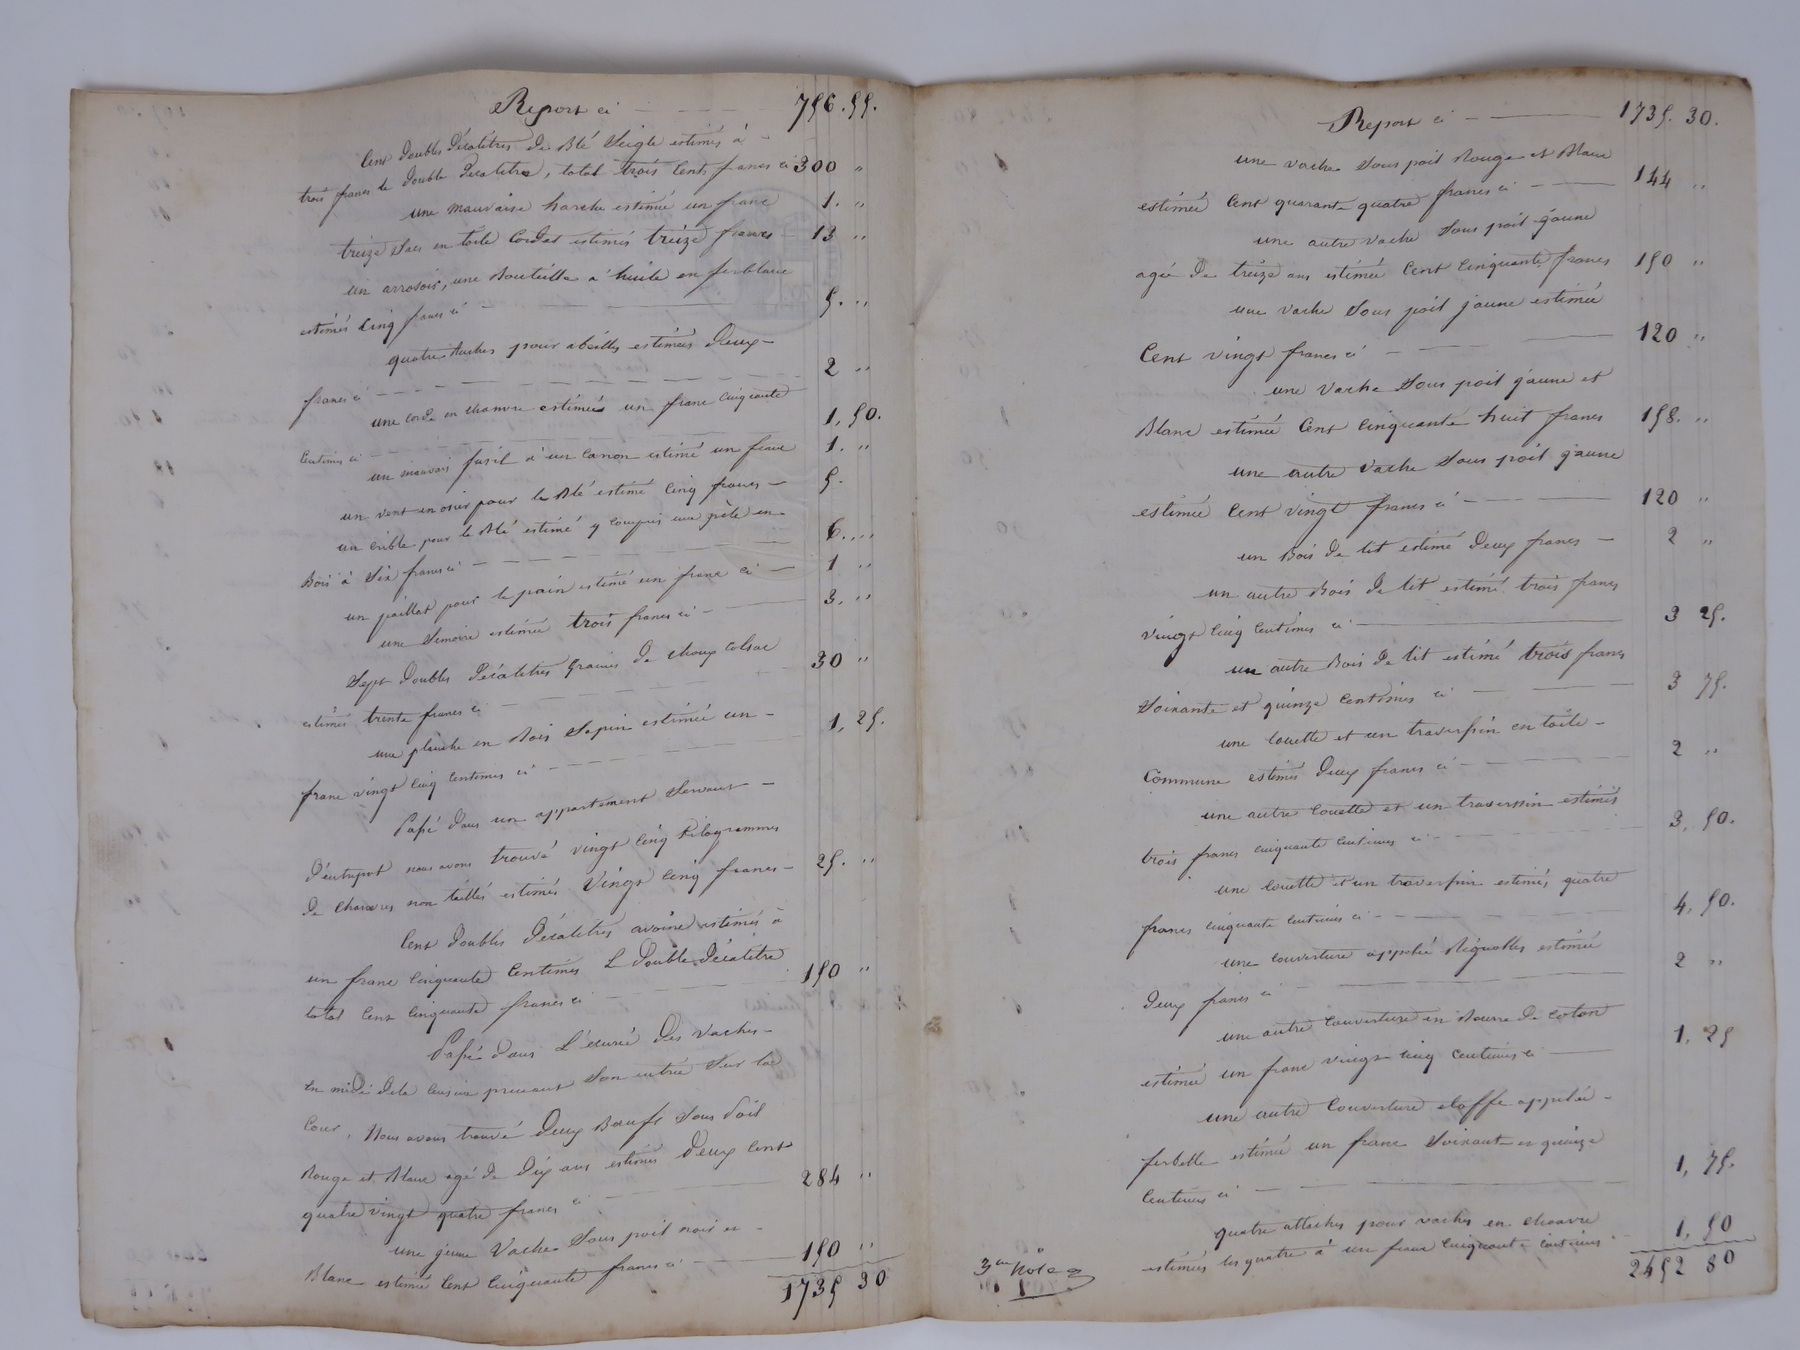 Report ci 756.55.
Cent doubles décalitres de Blé Seigle estimés à
trois francs le double décalitre, total trois cents francs ci 300 "
une mauvaise harche estimée un franc 1. "
treize sacs en toile cordat estimés treize francs 13 "
un arrosoir, une Bouteille à huile en ferblanc
estimés cinq francs ci 5. "
quatre Ruches pour abeilles estimées deux
francs ci 2 "
une corde en chanvre estimée un franc cinquante
centimes ci 1,50.
un mauvais fusil à un canon estimé un franc 1. "
un vent en osier pour le Blé estimé cinq francs 5.
un crible pour le Blé estimé y compris une pèle en
Bois à six francs ci 6. "
un paillat pour le pain estimé un franc ci 1 "
une semoire estimée trois francs ci 3. "
Sept doubles décalitres graines de choux colsac
estimés trente francs ci 30 "
une planche en Bois Sapin estimée un
franc vingt cinq centimes ci 1,25.
Passé dans un appartement servant
d'entrepot nous avons trouvé vingt cinq kilogrammes
de chanvres non taillés estimés vingt cinq francs 25. "
Cent doubles décalitres avoine estimés à
un franc cinquante centimes le double décalitre
total cent cinquante francs ci 150 "
Passé dans l'écurie des vaches
en midi de la cuisine prenant son entrée sur la
cour, Nous avons trouvé deux Bœufs sous poil
Rouge et Blanc agé de dix ans estimés deux cent
quatre vingt quatre francs ci 284 "
une jeune Vache sous poil noir et
Blanc estimée cent cinquante francs ci 150 "
1735 30
Report ci 1735.30.
une vache sous poil Rouge et Blanc
estimée cent quarante quatre francs ci 144 "
une autre vache sous poil jaune
agée de treize ans estimée cent cinquante francs 150 "
une vache sous poil jaune estimée
cent vingt francs ci 120 "
une vache sous poil jaune et
Blanc estimée cent cinquante huit francs 158. "
une autre vache sous poil jaune
estimée cent vingt francs ci 120 "
un Bois de lit estimé deux francs 2 "
un autre Bois de lit estimé trois francs
vingt cinq centimes ci 3 25.
un autre Bois de lit estimé trois francs
soixante et quinze centimes ci 3 75.
une couette et un traversin en toile
commune estimés deux francs ci 2 "
une autre couette et un traversin estimés
trois francs cinquante centimes ci 3,50.
une couette et un traversin estimés quatre
francs cinquante centimes ci 4,50.
une couverture appelée estimée
deux francs ci 2 "
une autre couverture en Bourre de coton
estimée un franc vingt cinq centimes ci 1,25
une autre couverture étoffe appelée
ferbelle estimée un franc soixante et quinze
centimes ci 1,75.
quatre attaches pour vaches en chanvre
estimées les quatre à un franc cinquante centimes 1,50
2452 80
3me Rôle